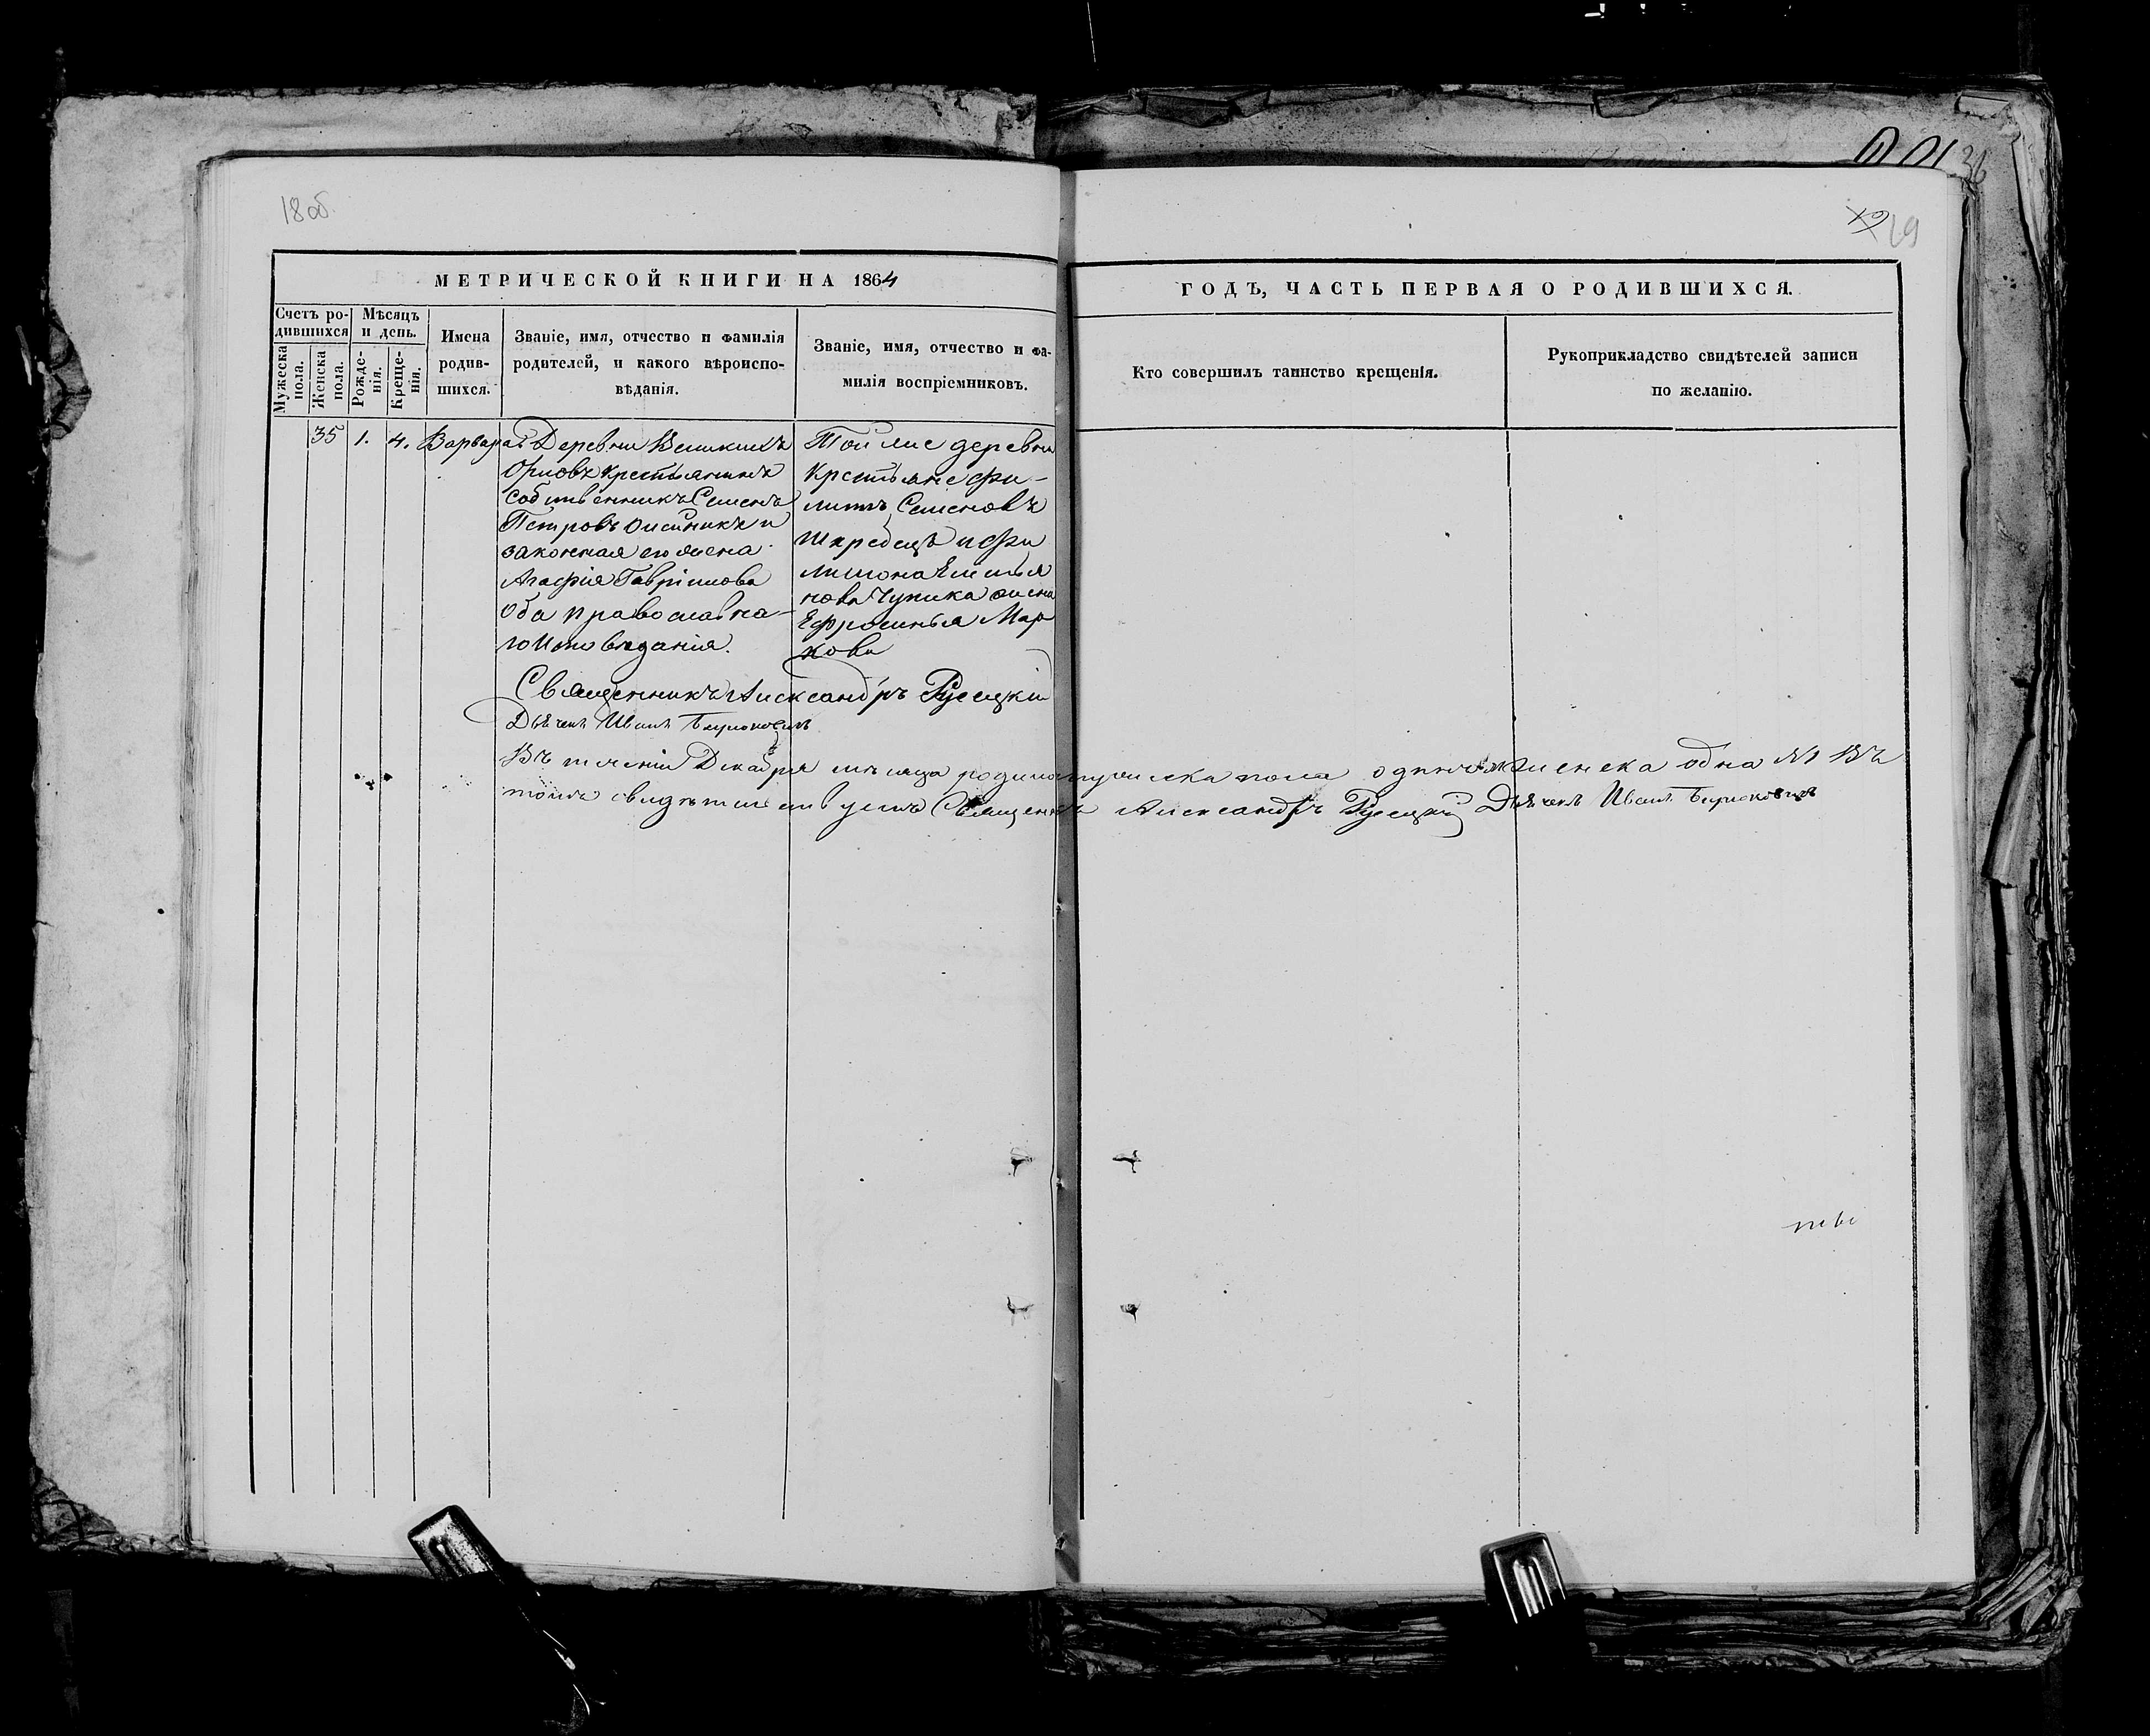 18 об.
19
36
МЕТРИЧЕСКОЙ КНИГИ НА 1864
ГОДЪ, ЧАСТЬ ПЕРВАЯ О РОДИВШИХСЯ.
Счетъ родившихся
Мужеска пола.
Женска пола.
Мѣсяцъ и день.
Рожденія.
Крещенія.
Имена родившихся.
Званіе, имя, отчество и фамилія
родителей, и какого вѣроиспо-
вѣданія.
Званіе, имя, отчество и фа-
милія воспріемниковъ.
Кто совершилъ таинство крещенія.
Рукоприкладство свидѣтелей записи
по желанію.
35 1. 4. Варвара
Деревни Великихъ
Орловъ крестьянинъ
собственникъ Семенъ
Петровъ и
законная его жена
Агафія Гаврiилова
оба православна-
го исповѣданія.
Той же деревни
крестьяне Фи-
липъ Семеновъ
и Фи
лимона Емелья
нова Чупика жена
Ефросинья Мар
кова
Священникъ Александръ Русецкій
Дьячекъ Иванъ
Въ теченіи Декабря мѣсяца родилось мужеска пола одинъ женска одна №1 Въ
томъ свидѣтельствуемъ Священникъ Александръ Русецкій Дьячекъ Иванъ